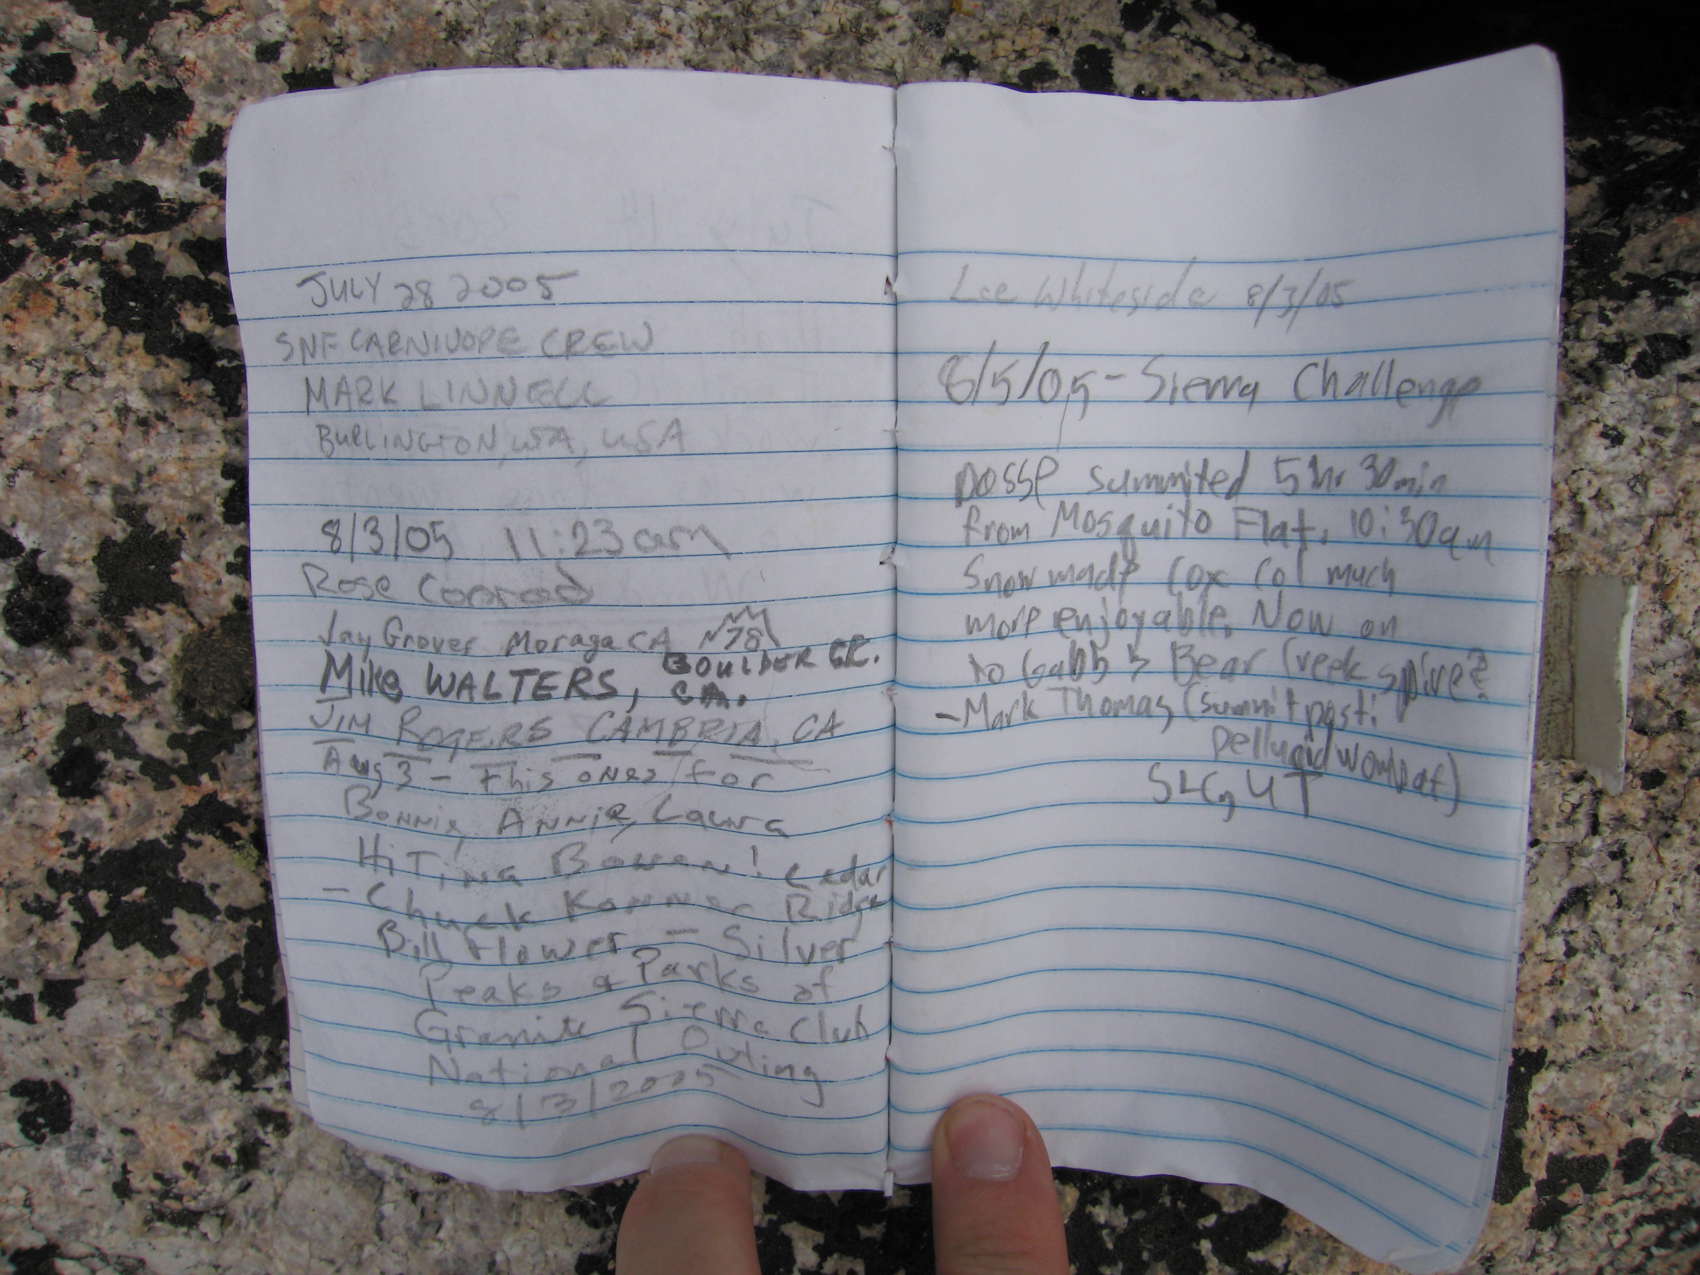 JULY 28 2005
SNF CARNIVORE CREW
MARK LINNELL
BURLINGTON, WA, USA
8/3/05 11:23am
Rose Conrad
Jay Grover Moraga CA
Mike WALTERS, BOULDER CR.
CA.
JIM ROGERS CAMBRIA, CA
Aug 3 - This ones for
Bonnie, Annie, Laura
Hi Tina Bowen! Cedar
- Chuck Ridge
Bill Flower - Silver
Peaks & Parks of
Granite Sierra Club
National Outing
8/3/2005
Lee Whiteside 8/3/05
8/5/05 - Sierra Challenge
posse summited 5 hr 30min
from Mosquito Flat, 10:30am
Snow made Cox Col much
more enjoyable. Now on
to Gabb & Bear Creek spire?
- Mark Thomas (summitpost:
pellucidwombat)
SLC, UT